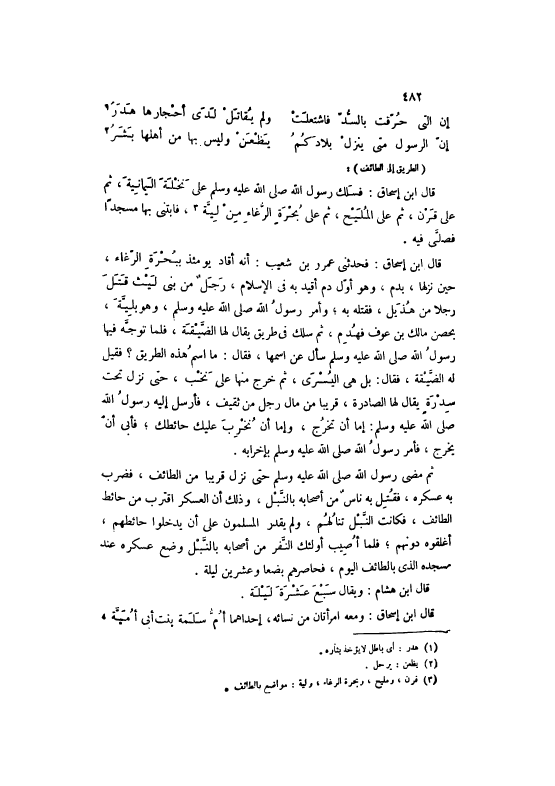 ٤٨٢
إن التى حُرّقت بالسُّدّ فاشتعلتْ ولم يُقاتَلْ لَدَى أحْجارها هَدَرُ١
إنّ الرسول متى ينزلْ بلادكُمُ يَظْعَنْ وليس بها من أهلها بَشَرُ٢
( الطريق إلى الطائف ) :
قال ابن إسحاق : فسلك رسول الله صلى الله عليه وسلم على نَخْلَة اليَمانِية ، ثم
على قَرْن ، ثم على المُلَيْح ، ثم على بُحْرَةِ الرُّغاءِ مِنْ لِيَّة ٣ ، فابتنى بها مسجدًا
فصلَّى فيه .
قال ابن إسحاق : فحدثنى عمرو بن شعيب : أنه أقاد يومئذ ببُحْرَةِ الرّغاء ،
حين نزلها ، بدم ، وهو أوّل دم أقيد به فى الإسلام ، رَجَلٌ من بنى لَيْث قَتَلَ
رجلا من هُذَيل ، فقتله به ؛ وأمر رسولُ الله صلى الله عليه وسلم ، وهو بلِيَّةَ ،
بحصن مالك بن عوف فهُدِم ، ثم سلك فى طريق يقال لها الضَّيْقة ، فلما توجَّه فيها
رسولُ الله صلى الله عليه وسلم سأل عن اسمها ، فقال : ما اسمُ هذه الطريق ؟ فقيل
له الضَّيْقة ، فقال: بل هى اليُسْرَى ، ثم خرج منها على نَخْب ، حتى نزل تحت
سِدْرَةٍ يقال لها الصادرة ، قريبا من مال رجل من ثقيف ، فأرسل إليه رسولُ الله
صلى الله عليه وسلم: إما أن تخرُج ، وإما أن نُخْرِبَ عليك حائطك ؛ فأبى أنْ
يخرج ، فأمر رسولُ الله صلى الله عليه وسلم بإخرابه .
ثم مضى رسول الله صلى الله عليه وسلم حتى نزل قريبا من الطائف ، فضرب
به عسكره ، فقُتِل به ناسٌ من أصحابه بالنَّبْل ، وذلك أن العسكر اقترب من حائط
الطائف ، فكانت النَّبْل تنالُهُم ، ولم يقدر المسلمون على أن يدخلوا حائطهم ،
أغلقوه دونهم ؛ فلما أُصيب أولئك النَّفر من أصحابه بالنَّبْل وضع عسكره عند
مسجده الذى بالطائف اليوم ، فحاصرهم بضعا وعشرين ليلة .
قال ابن هشام : ويقال سَبْعَ عَشْرَةَ لَيْلَة .
قال ابن إسحاق : ومعه امرأتان من نسائه، إحداهما أُمُّ سَلَمة بنت أبى أُمَيَّة ،
(١) هدر : أى باطل لايؤخذ بثأره .
(٢) يظعن : يرحل .
(٣) قرن ، ومليح ، وبحرة الرغاء ، ولية : مواضع بالطائف .